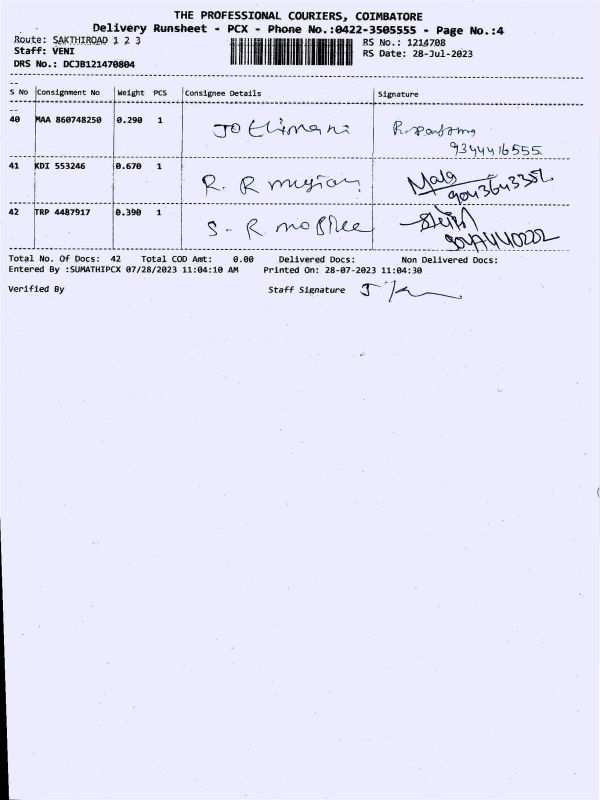 THE PROFESSIONAL COURIERS, COIMBATORE
Delivery Runsheet - PCX - Phone No.:0422-3505555 - Page No.:4
Route: SAKTHIROAD 1 2 3 RS No.: 1214708
Staff: VENI RS Date: 28-Jul-2023
DRS No.: DCJB121470804
S No Consignment No Weight PCS Consignee Details Signature
40 MAA 860748250 0.290 1 Jothimani
9344416555
41 KDI 553246 0.670 1 R. R
Mala
9043643352
42 TRP 4487917 0.390 1 S - R mobilee
Total No. Of Docs: 42 Total COD Amt: 0.00 Delivered Docs: Non Delivered Docs:
Entered By :SUMATHIPCX 07/28/2023 11:04:10 AM Printed On: 28-07-2023 11:04:30
Verified By Staff Signature